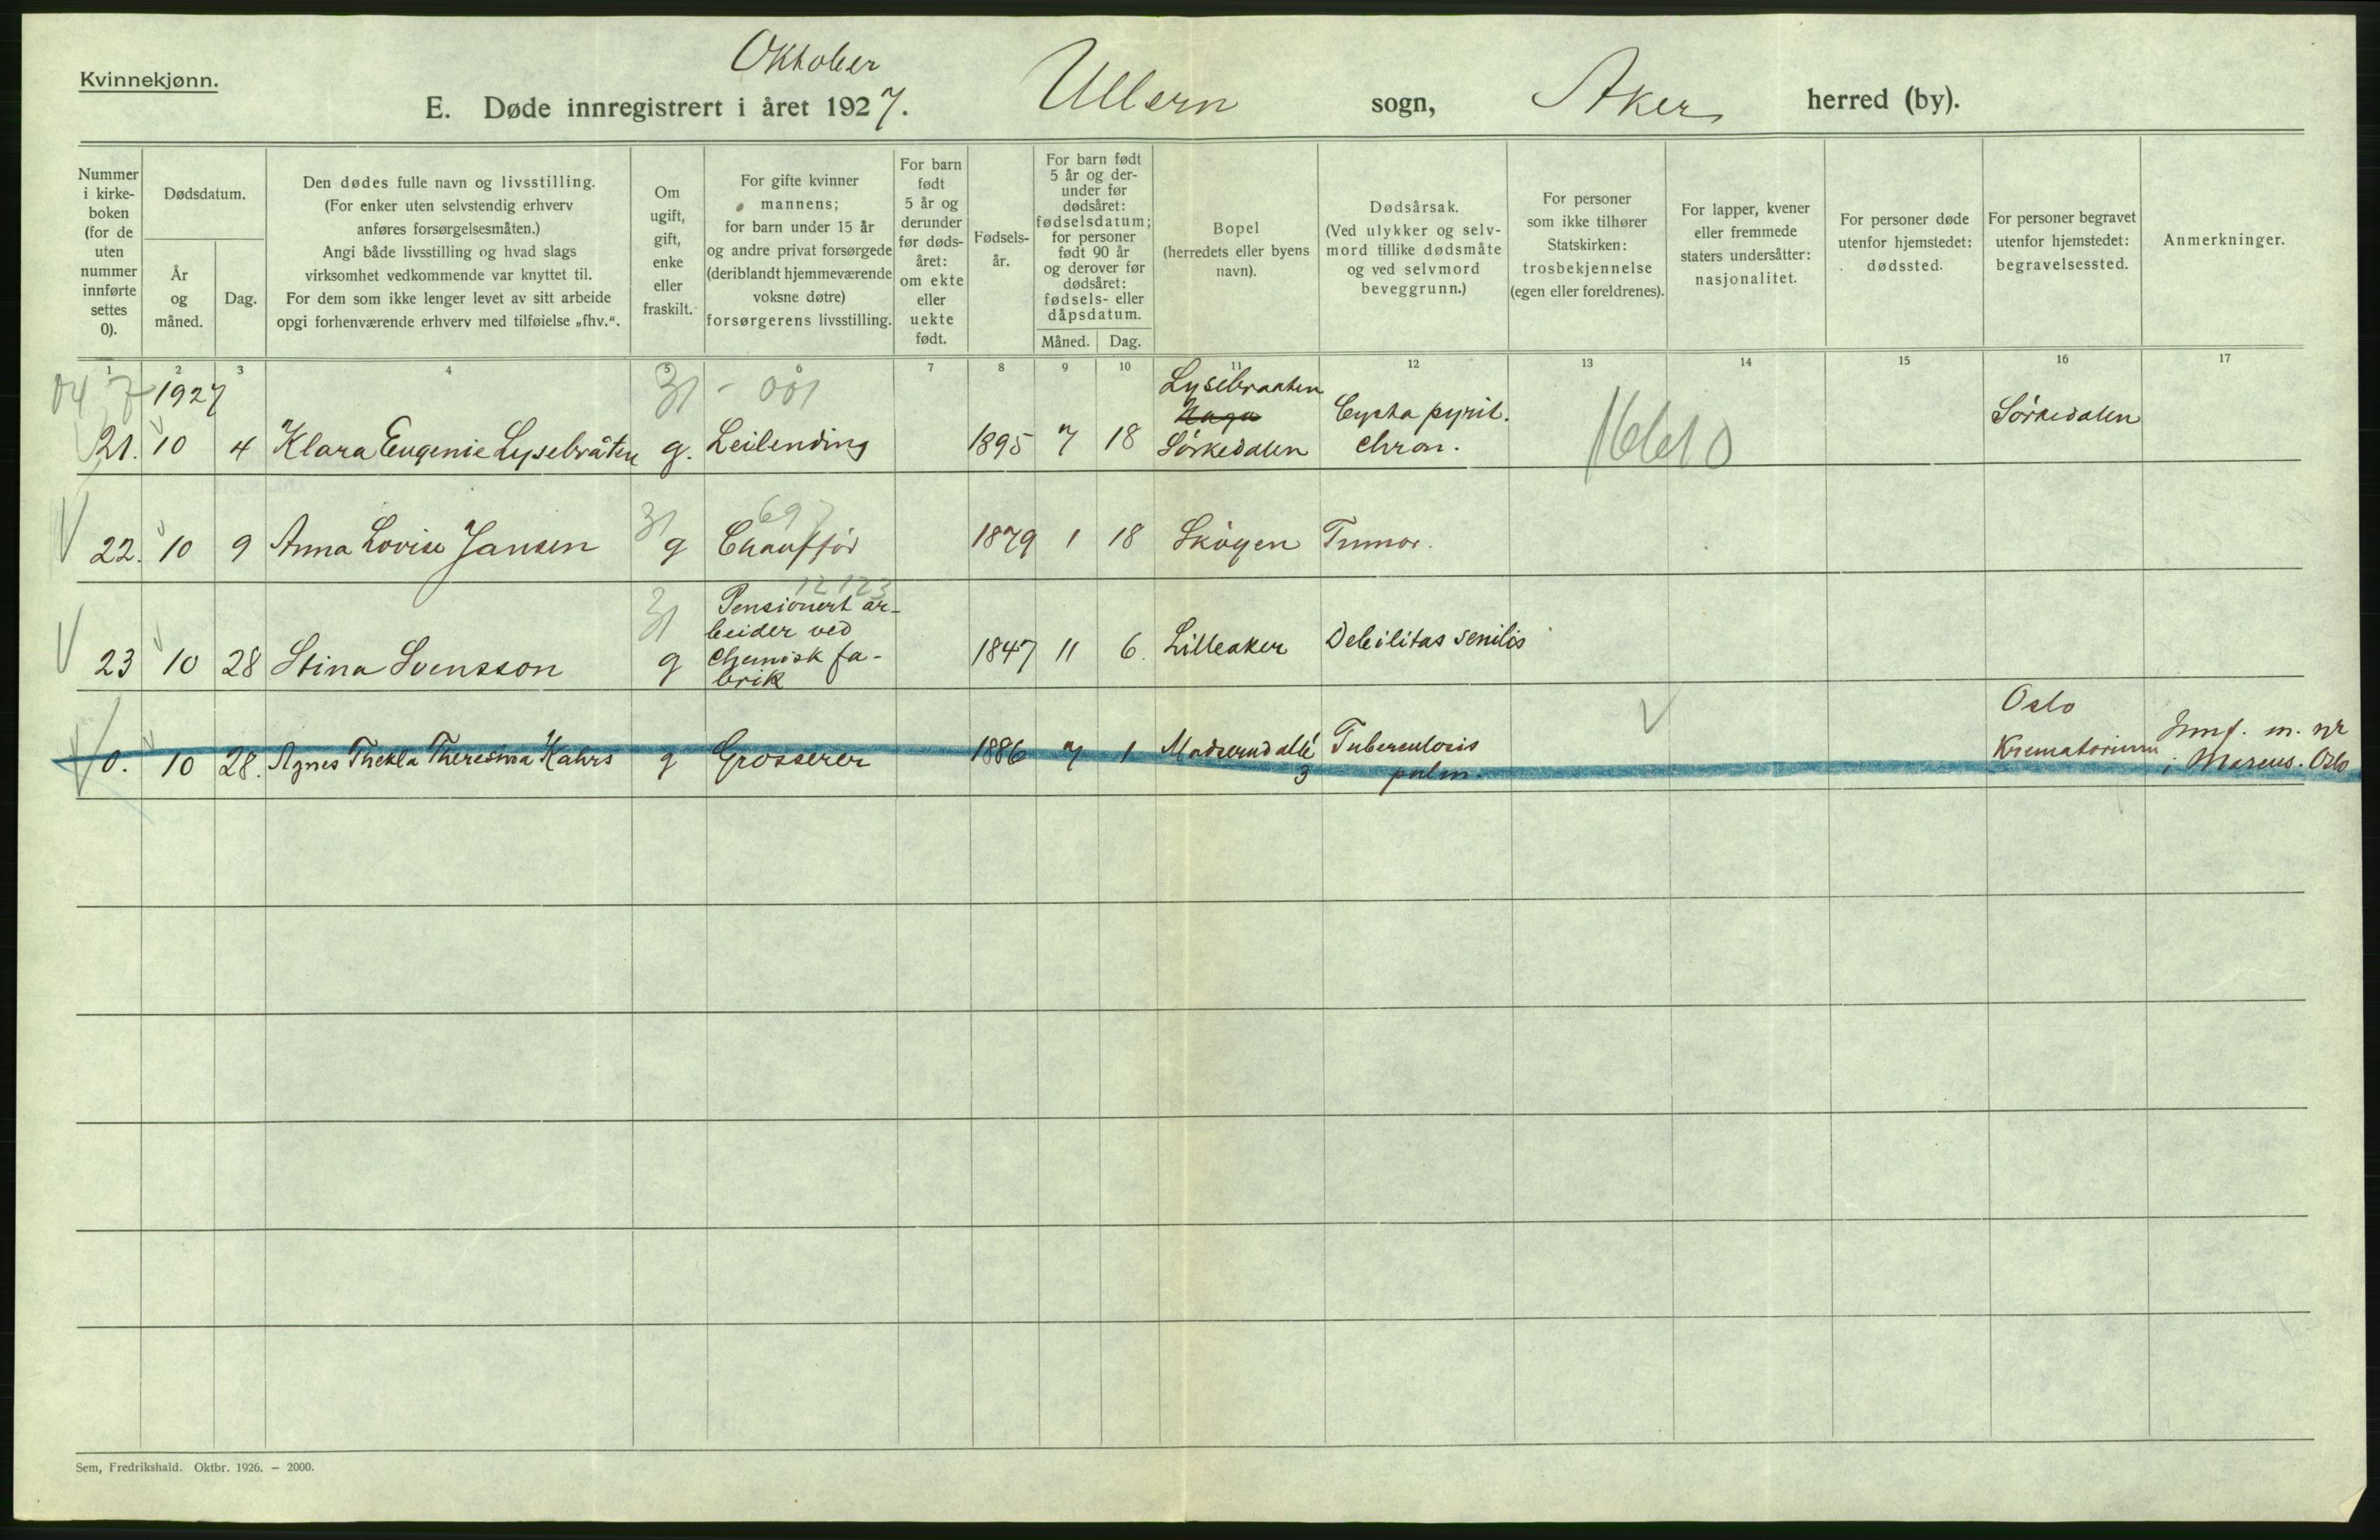 Kvinnekjønn.
Oktober
E. Døde innregistrert i året 1927. Ullern sogn, Aker herred (by).
Nummer i kirke- boken (for de uten nummer innførte settes 0).
Dødsdatum.
År og måned.
Dag.
Den dødes fulle navn og livsstilling.
(For enker uten selvstendig erhverv
anføres forsørgelsesmåten.)
Angi både livsstilling og hvad slags
virksomhet vedkommende var knyttet til.
For dem som ikke lenger levet av sitt arbeide
opgi forhenværende erhverv med tilføielse „fhv.“.
Om ugift, gift, enke eller fraskilt.
For gifte kvinner
mannens;
for barn under 15 år
og andre privat forsørgede
(deriblandt hjemmeværende
voksne døtre)
forsørgerens livsstilling.
For barn født 5 år og derunder før døds- året: om ekte eller uekte født.
Fødsels- år.
For barn født
5 år og der-
under før
dødsåret:
fødselsdatum;
for personer
født 90 år
og derover før
dødsåret:
fødsels- eller
dåpsdatum.
Måned. Dag.
Bopel
(herredets eller byens
navn).
Dødsårsak.
(Ved ulykker og selv-
mord tillike dødsmåte
og ved selvmord
beveggrunn.)
For personer
som ikke tilhører
Statskirken:
trosbekjennelse
(egen eller foreldrenes).
For lapper, kvener
eller fremmede
staters undersåtter:
nasjonalitet.
For personer døde
utenfor hjemstedet:
dødssted.
For personer begravet
utenfor hjemstedet:
begravelsessted.
Anmerkninger.
1 2 3 4 5 6 7 8 9 10 11 12 13 14 15 16 17
1927 31 - 001 Lysebraaten
21. 10 4 Klara Eugenie Lysebråten g. Leilending 1895 7 18 Sørkedalen Cysta pyrit. chron. Sørkedalen
31 697
22. 10 9 Anna Lovise Jansen g Chauffør 1879 1 18 Skøyen Tumor.
31 12123
23 10 28 Stina Svensson g Pensionert ar-
beider ved
chemisk fa-
brik 1847 11 6. Lilleaker Debilitas senilis
0. 10 28. Agnes Thekla Theresina Kahrs g Grosserer 1886 7 1 Madserud allé 3 Tuberculosis pulm. Oslo Krematorium Innf. m. nr i Marcus. Oslo
Sem, Fredrikshald. Oktbr. 1926. — 2000.